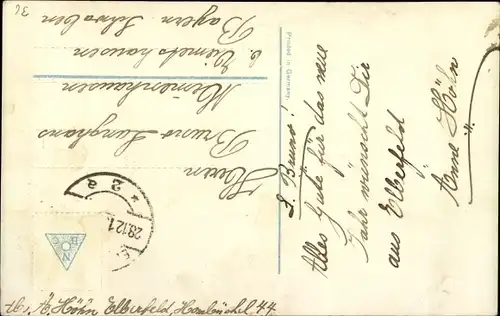 L. Bruno!
Alles Gute für das neue
Jahr wünscht Dir
aus Elberfeld
Änne Höhn
Printed in Germany.
Herrn
Bruno Langhans
Memenhausen
b. Ziemetshausen
Bayern Schwaben
* 2 a
28.12.1
N
B C
A. Höhn Elberfeld, Hombüchel 44